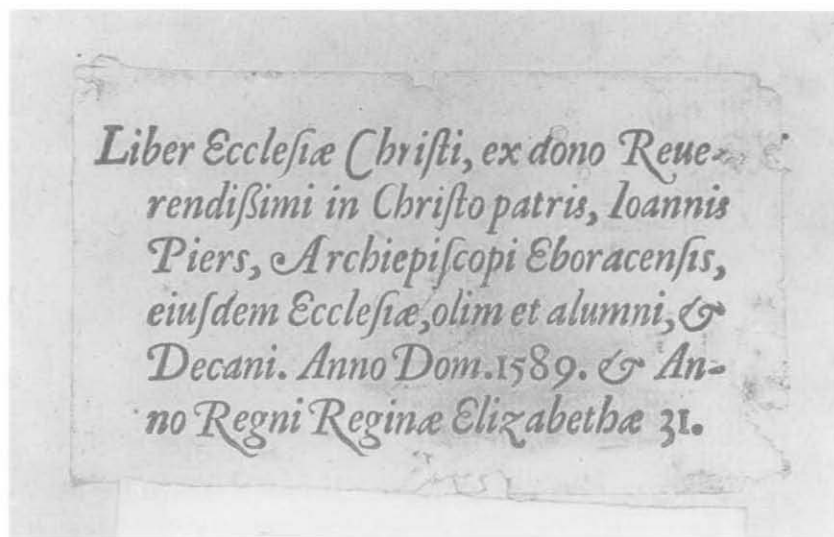 Liber Eccleſiæ Chriſti, ex dono Reue-
rendiſſimi in Chriſto patris, Ioannis
Piers, Archiepiſcopi Eboracenſis,
eiuſdem Eccleſiæ, olim et alumni, &
Decani. Anno Dom. 1589. & An-
no Regni Reginæ Elizabethæ 31.